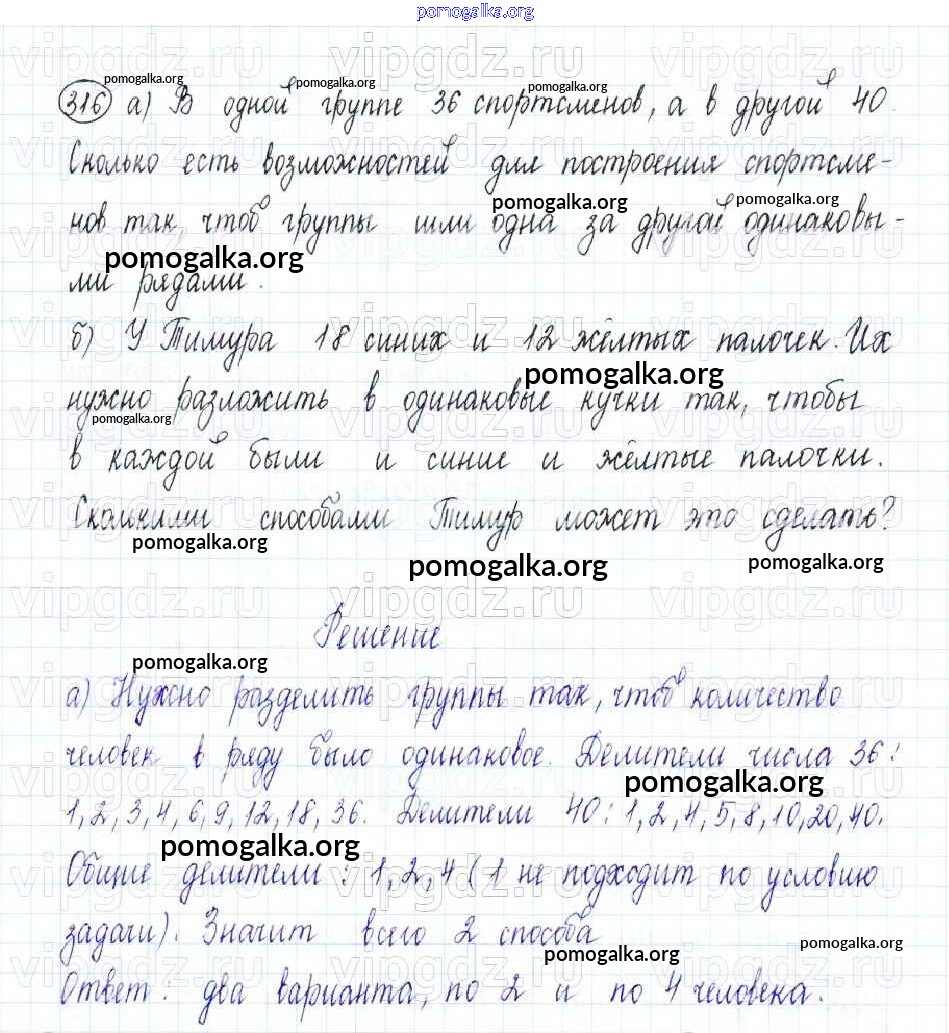 pomogalka.org
316 а) В одной группе 36 спортсменов, а в другой 40.
Сколько есть возможностей для построения спортсме-
нов так, чтоб группы шли одна за другой одинаковы-
ми рядами.
б) У Тимура 18 синих и 12 жёлтых палочек. Их
нужно разложить в одинаковые кучки так, чтобы
в каждой были и синие и жёлтые палочки.
Сколькими способами Тимур может это сделать?
Решение
а) Нужно разделить группы так, чтоб количество
человек в ряду было одинаковое. Делители числа 36:
1, 2, 3, 4, 6, 9, 12, 18, 36. Делители 40: 1, 2, 4, 5, 8, 10, 20, 40.
Общие делители: 1, 2, 4 (1 не подходит по условию
задачи). Значит всего 2 способа
Ответ: два варианта, по 2 и по 4 человека.